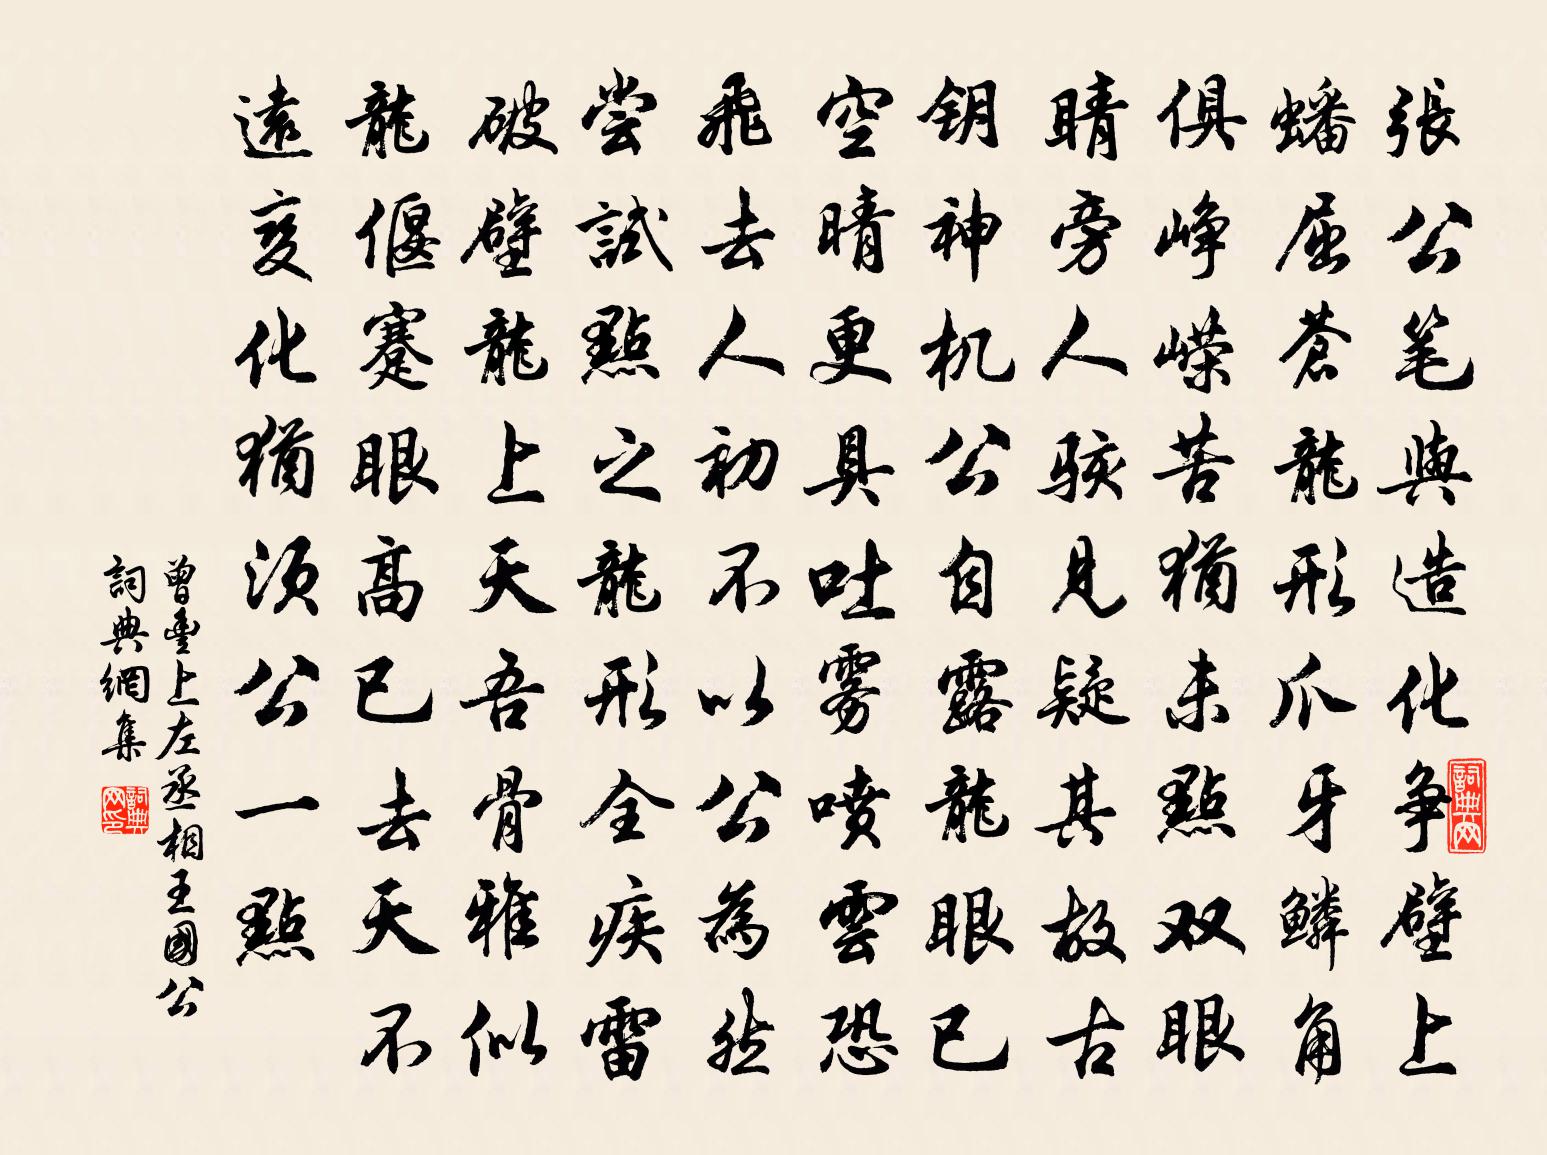 張公笔與造化争壁上
蟠屈蒼龍形爪牙鱗角
俱峥嵘苦猶未點双眼
睛旁人骇見疑其故古
钥神机公自露龍眼已
空晴更具吐雾喷雲恐
飛去人初不以公為然
尝試點之龍形全疾雷
破壁龍上天吾骨雅似
龍偃蹇眼高已去天不
遠変化猶須公一點
曾豐上左丞相王國公
詞典網集
詞典网
詞典网印